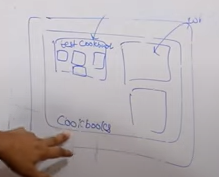 test Cookbook
Cookbooks